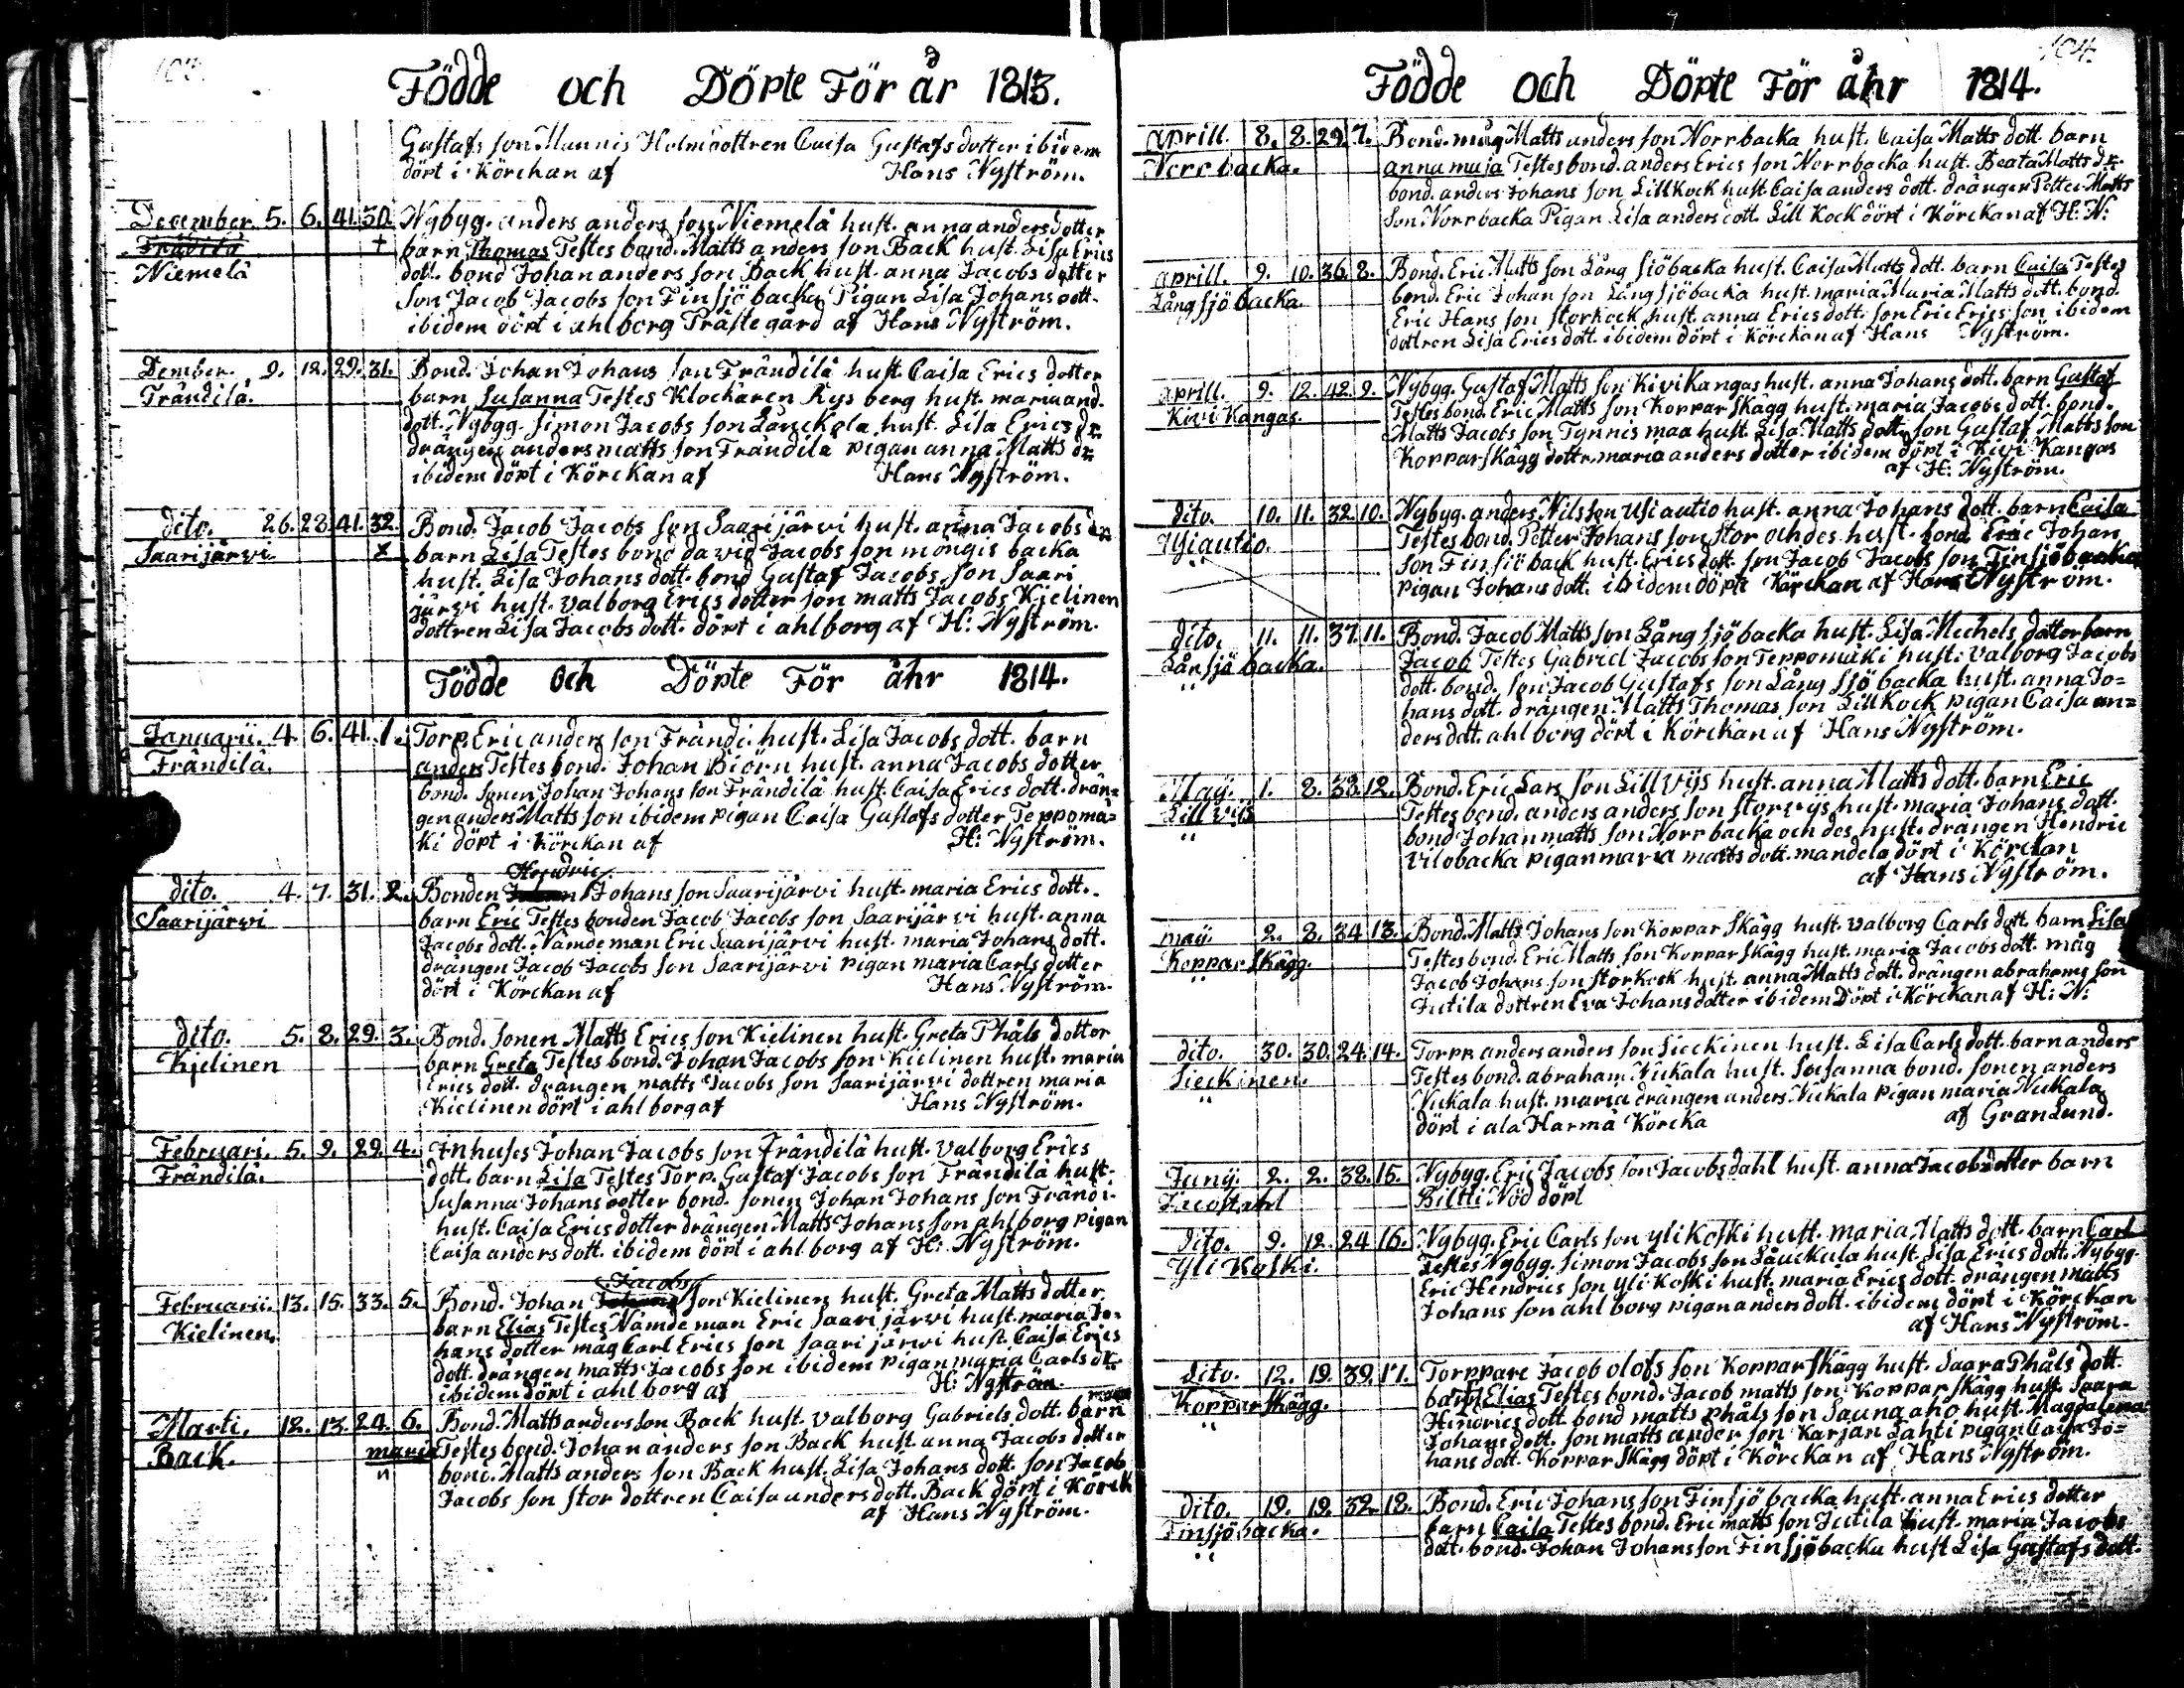 103.
Födde och Döpte För år 1813.
Gustafs son Munnis Holm dottren Caisa Gustafs dotter ibidem
döpt i Körckan af Hans Nyström.
December 5. 6. 41. 30. Nybyg. anders anders son Niemelä hust. anna anders dotter
Frändilä + barn Thomas Testes bond. Matts anders son Back hust. Lisa Erics
Niemelä dott. bond Johan anders son Back hust. anna Jacobs dotter
son Jacob Jacobs son Finsjö backa Pigan Lisa Johans dott.
ibidem döpt i ahlborg Prästegård af Hans Nyström.
Dember. 9. 12. 29. 31. Bond. Johan Johans son Frändilä hust. Caisa Erics dotter
Frändilä. barn Susanna Testes Klockaren Rys berg hust. maria and.
dott. Nybyg. Simon Jacobs son Lauckola hust. Lisa Erics dr.
drängen anders matts son Frändilä pigan anna Matts dr
ibidem döpt i Körckan af Hans Nyström.
dito. 26. 28. 41. 32. Bond. Jacob Jacobs son Saarijärvi hust. anna Jacobs dr
Saarijärvi x barn Lisa Testes bond david Jacobs son mongis backa
hust. Lisa Johans dott. bond Gustaf Jacobs son Saari
järvi hust. valborg Erics dotter son matts Jacobs Kielinen
dottren Lisa Jacobs dott. döpt i ahlborg af H: Nyström.
Födde och Döpte För åhr 1814.
Januarii. 4. 6. 41. 1. Torp. Eric anders son Frändi. hust. Lisa Jacobs dott. barn
Frändilä. anders Testes bond. Johan Biörn hust. anna Jacobs dotter
bond. sonen Johan Johans son Frändilä hust. Caisa Erics dott. drän=
gen anders Matts son ibidem pigan Caisa Gustafs dotter Teppomä=
ki döpt i Körckan af H: Nyström.
Hendric
dito. 4. 7. 31. 2. Bonden Johan Johans son Saarijärvi hust. maria Erics dott.
Saarijärvi barn Eric Testes bonden Jacob Jacobs son Saarijärvi hust. anna
Jacobs dott. Nämde man Eric Saarijärvi hust. maria Johans dott.
drängen Jacob Jacobs son Saarijärvi pigan maria Carls dotter
döpt i Körckan af Hans Nyström.
dito. 5. 8. 29. 3. Bond. sonen Matts Erics son Kielinen hust. Greta Phåls dotter
Kielinen barn Greta Testes bond. Johan Jacobs son Kielinen hust. maria
Erics dott. drängen matts Jacobs son Saarijärvi dottren maria
Kielinen döpt i ahl borg af Hans Nyström.
Februari. 5. 9. 29. 4. Inhuses Johan Jacobs son Frändilä hust. valborg Erics
Frändilä. dott. barn Lisa Testes Torp. Gustaf Jacobs son Frändilä hust.
Susanna Johans dotter bond. sonen Johan Johans son Frändi.
hust. Caisa Erics dotter drängen Matts Johans son ahlborg pigan
Caisa anders dott. ibidem döpt i ahl borg af H: Nyström.
Jacobs
Februarii. 13. 15. 33. 5. Bond. Johan son Kielinen hust. Greta Matts dotter
Kielinen. barn Elias Testes Nämde man Eric Saari järvi hust. maria Jo=
hans dotter mag Carl Erics son Saari järvi hust. Caisa Erics
dott. drängen matts Jacobs son ibidem pigan maria Carls dr
ibidem döpt i ahl borg af H: Nyström.
maria
Marti. 12. 13. 24. 6. Bond. Matts anders son Back hust. valborg Gabriels dott. barn
Back. maria Testes bond. Johan anders son Back hust. anna Jacobs dotter
bond. Matts anders son Back hust. Lisa Johans dott. son Jacob
Jacobs son stor dottren Caisa anders dott. Back döpt i Körck
af Hans Nyström.
104.
Födde och Döpte För åhr 1814.
aprill. 8. 8. 29. 7. Bond. mug Matts anders son Norrbacka hust. Caisa Matts dott. barn
Norrbacka. anna maja Testes bond. anders Erics son Norrbacka hust. Beata Matts dr.
bond. anders Johans son Lillkock hust Caisa anders dott. drängen Petter Matts
son Norrbacka Pigan Lisa anders dott. Lill Kock döpt i Körckan af H: N:
aprill. 9. 10. 36. 8. Bond. Eric Matts son Lång sjöbacka hust. Caisa Matts dott. barn Caisa Testes
Lång sjö backa. bond. Eric Johan son Lång sjöbacka hust. maria Maria Matts dott. bond.
Eric Hans son storkock hust. anna Erics dott. son Eric Erics son ibidem
dottren Lisa Erics dott. ibidem döpt i Körckan af Hans Nyström.
aprill. 9. 12. 42. 9. Nybyg. Gustaf Matts son Kivikangas hust. anna Johans dott. barn Gustaf
Kivi Kangas. Testes bond. Eric Matts son Koppar Skägg hust. maria Jacobs dott. bond.
Matts Jacobs son Tynnis maa hust. Lisa Matts dott. son Gustaf Matts son
Kopparskägg dottr. maria anders dotter ibidem döpt i Kivi Kangas
af H: Nyström.
dito. 10. 11. 32. 10. Nybyg. anders Nils son Usi autio hust. anna Johans dott. barn Caisa
Testes bond. Petter Johans son stor och des hust. bond. Eric Johan
" son Finsjö back hust. Erics dott. son Jacob Jacobs son Finsjöbacka
pigan Johans dott. ibidem döpt i Körckan af Hans Nyström.
dito. 11. 11. 37. 11. Bond. Jacob Matts son Lång sjö backa hust. Lisa Michels dotter barn
Lånsjö backa. Jacob Testes Gabriel Jacobs son Teppomäki hust. valborg Jacobs
" dott. bond. son Jacob Gustafs son Lång sjö backa hust. anna Jo=
hans dott. drängen Matts Thomas son Lillkock pigan Caisa an=
ders dott. ahl borg döpt i Körckan af Hans Nyström.
May. 1. 8. 38. 12. Bond. Eric Lars son Lill vijs hust. anna Matts dott. barn Eric
Lill vijs Testes bond. anders anders son stor vys hust. maria Johans dott.
" bond Johan matts son Norr backa och des hust. drängen Hendric
vilobacka pigan maria matts dott. mandela döpt i Körckan
af Hans Nyström.
may. 2. 8. 34 13. Bond. Matts Johans son Koppar Skägg hust. valborg Carls dott. barn Lisa
Koppar Skägg. Testes bond. Eric Matts son Koppar Skägg hust. maria Jacobs dott. måg
" Jacob Johans son storkock hust. anna Matts dott. drängen abrahams son
Jutila dottren Eva Johans dotter ibidem Döpt i Körckan af H: N:
dito. 30. 30. 24. 14. Torpp. anders anders son Sieckinen hust. Lisa Carls dott. barn anders
Sieckinen. Testes bond. abraham Nukala hust. Susanna bond. sonen anders
" Nukala hust. maria drängen anders Nukala pigan maria Nukala
döpt i ala Harmä Körcka af GranLund.
Junij. 2. 2. 38. 15. Nybyg. Eric Jacobs son Jacobs dahl hust. anna Jacobs dotter barn
Biltti Nöd döpt
dito. 9. 12. 24 16. Nybyg. Eric Carls son ylikoski hust. maria Matts dott. barn Carl
Yli Koski. Testes Nybyg. Simon Jacobs son Lauckula hust. Lisa Erics dott. Nybyg.
Eric Hendrics son yli Koski hust. maria Erics dott. drängen matts
Johans son ahl borg pigan anders dott. ibidem döpt i Körckan
af Hans Nyström.
dito. 12. 19. 39. 17. Torppare Jacob olofs son Koppar Skägg hust. Saara Phåls dott.
Koppar Skägg. barn Elias Testes bond. Jacob matts son Koppar Skägg hust. Saara
" Hindrics dott. bond matts phåls son Sauna aho hust. Magdalena
Johans dott. son matts ander son Karjan Lahti pigan Caisa Jo=
hans dott. Koppar Skägg döpt i Körckan af Hans Nyström.
dito. 19. 19. 32. 18. Bond. Eric Johans son Finsjö backa hust. anna Erics dotter
Finsjö backa. barn Caisa Testes bond. Eric matts son Jutila hust. maria Jacobs
" dott. bond. Johan Johans son Finsjöbacka hust Lisa Gustafs dott.